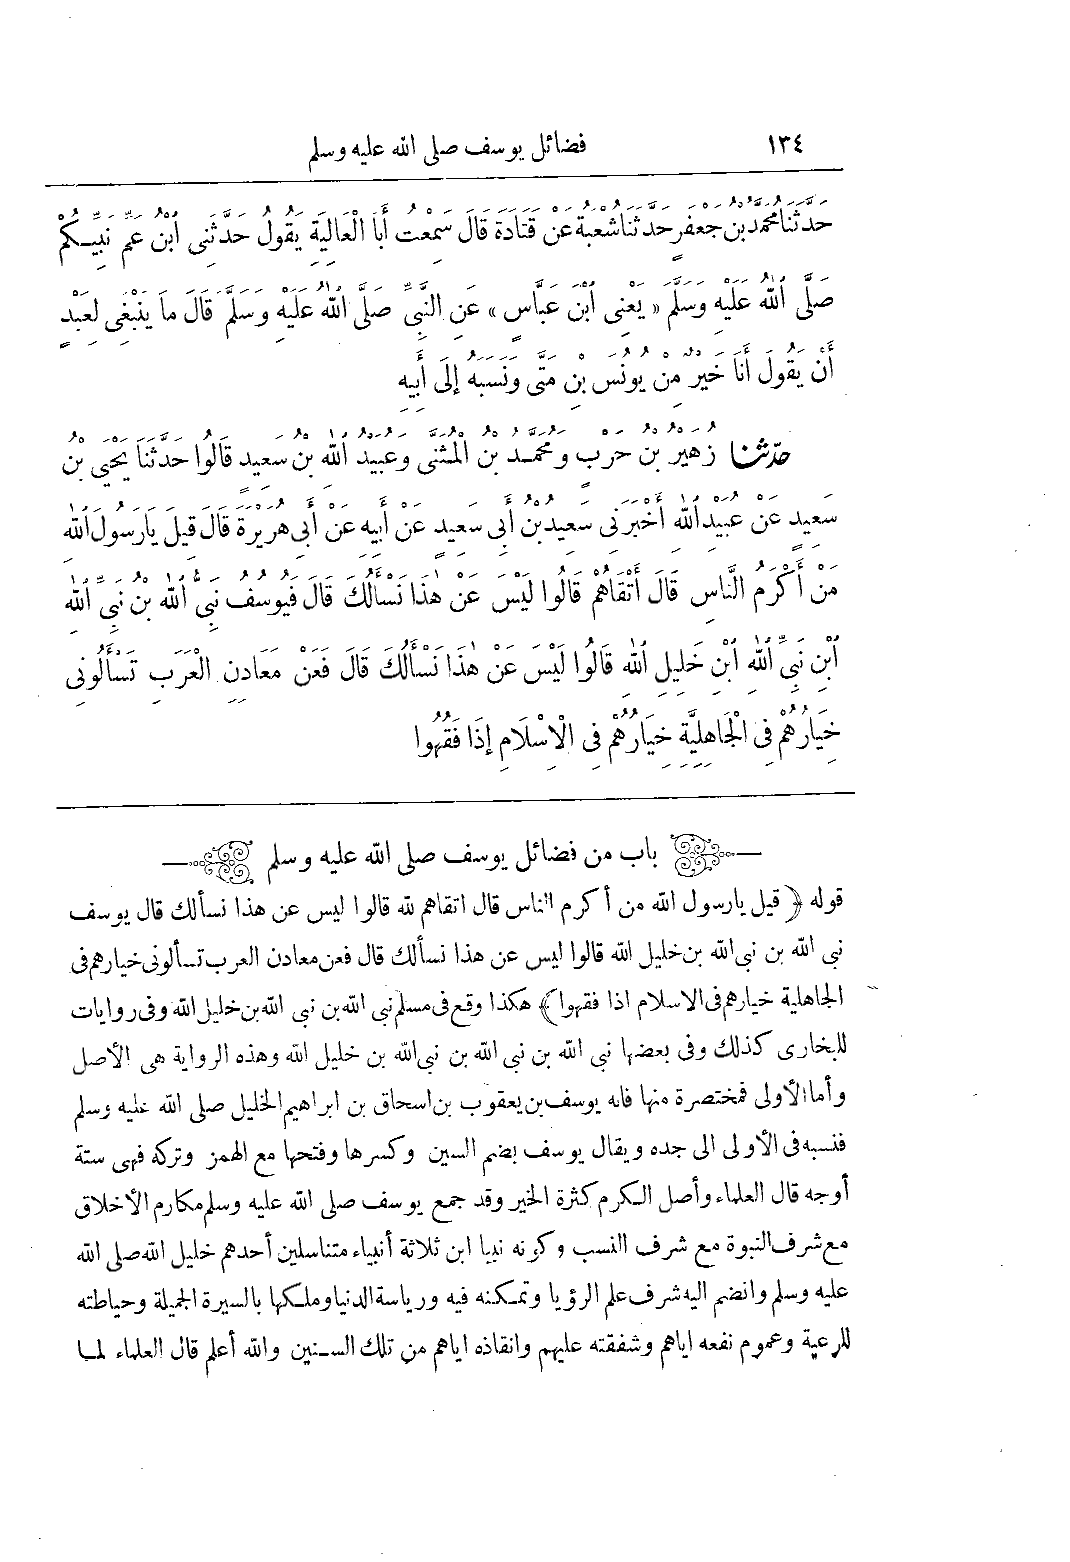 ١٣٤ فضائل يوسف صلى الله عليه وسلم
حَدَّثَنَا مُحَمَّدُ بْنُ جَعْفَرٍ حَدَّثَنَا شُعْبَةُ عَنْ قَتَادَةَ قَالَ سَمِعْتُ أَبَا الْعَالِيَةِ يَقُولُ حَدَّثَنِى ابْنُ عَمِّ نَبِيِّكُمْ
صَلَّى اللهُ عَلَيْهِ وَسَلَّمَ « يَعْنِى ابْنَ عَبَّاسٍ » عَنِ النَّبِىِّ صَلَّى اللهُ عَلَيْهِ وَسَلَّمَ قَالَ مَا يَنْبَغِى لِعَبْدٍ
أَنْ يَقُولَ أَنَا خَيْرٌ مِنْ يُونُسَ بْنِ مَتَّى وَنَسَبَهُ إِلَى أَبِيهِ
حَدَّثَنَا زُهَيْرُ بْنُ حَرْبٍ وَمُحَمَّدُ بْنُ الْمُثَنَّى وَعُبَيْدُ اللهِ بْنُ سَعِيدٍ قَالُوا حَدَّثَنَا يَحْيَى بْنُ
سَعِيدٍ عَنْ عُبَيْدِ اللهِ أَخْبَرَنِى سَعِيدُ بْنُ أَبِى سَعِيدٍ عَنْ أَبِيهِ عَنْ أَبِى هُرَيْرَةَ قَالَ قِيلَ يَارَسُولَ اللهِ
مَنْ أَكْرَمُ النَّاسِ قَالَ أَتْقَاهُمْ قَالُوا لَيْسَ عَنْ هٰذَا نَسْأَلُكَ قَالَ فَيُوسُفُ نَبِىُّ اللهِ بْنُ نَبِىِّ اللهِ
ابْنِ نَبِىِّ اللهِ ابْنِ خَلِيلِ اللهِ قَالُوا لَيْسَ عَنْ هٰذَا نَسْأَلُكَ قَالَ فَعَنْ مَعَادِنِ الْعَرَبِ تَسْأَلُونِى
خِيَارُهُمْ فِى الْجَاهِلِيَّةِ خِيَارُهُمْ فِى الْإِسْلَامِ إِذَا فَقُهُوا
باب من فضائل يوسف صلى الله عليه وسلم
قوله ﴿ قيل يارسول الله من أكرم الناس قال اتقاهم لله قالوا ليس عن هذا نسألك قال يوسف
نبى الله بن نبى الله بن خليل الله قالوا ليس عن هذا نسألك قال فعن معادن العرب تسألونى خيارهم فى
الجاهلية خيارهم فى الاسلام اذا فقهوا﴾ هكذا وقع فى مسلم نبى الله بن نبى الله بن خليل الله وفى روايات
للبخارى كذلك وفى بعضها نبى الله بن نبى الله بن نبى الله بن خليل الله وهذه الرواية هى الأصل
وأما الأولى فمختصرة منها فانه يوسف بن يعقوب بن اسحاق بن ابراهيم الخليل صلى الله عليه وسلم
فنسبه فى الأولى الى جده ويقال يوسف بضم السين وكسرها وفتحها مع الهمز وتركه فهى ستة
أوجه قال العلماء وأصل الكرم كثرة الخير وقد جمع يوسف صلى الله عليه وسلم مكارم الأخلاق
مع شرف النبوة مع شرف النسب وكونه نبيا ابن ثلاثة أنبياء متناسلين أحدهم خليل الله صلى الله
عليه وسلم وانضم اليه شرف علم الرؤيا وتمكنه فيه ورياسة الدنيا وملكها بالسيرة الجميلة وحياطته
للرعية وعموم نفعه اياهم وشفقته عليهم وانقاذه اياهم من تلك السنين والله أعلم قال العلماء لما